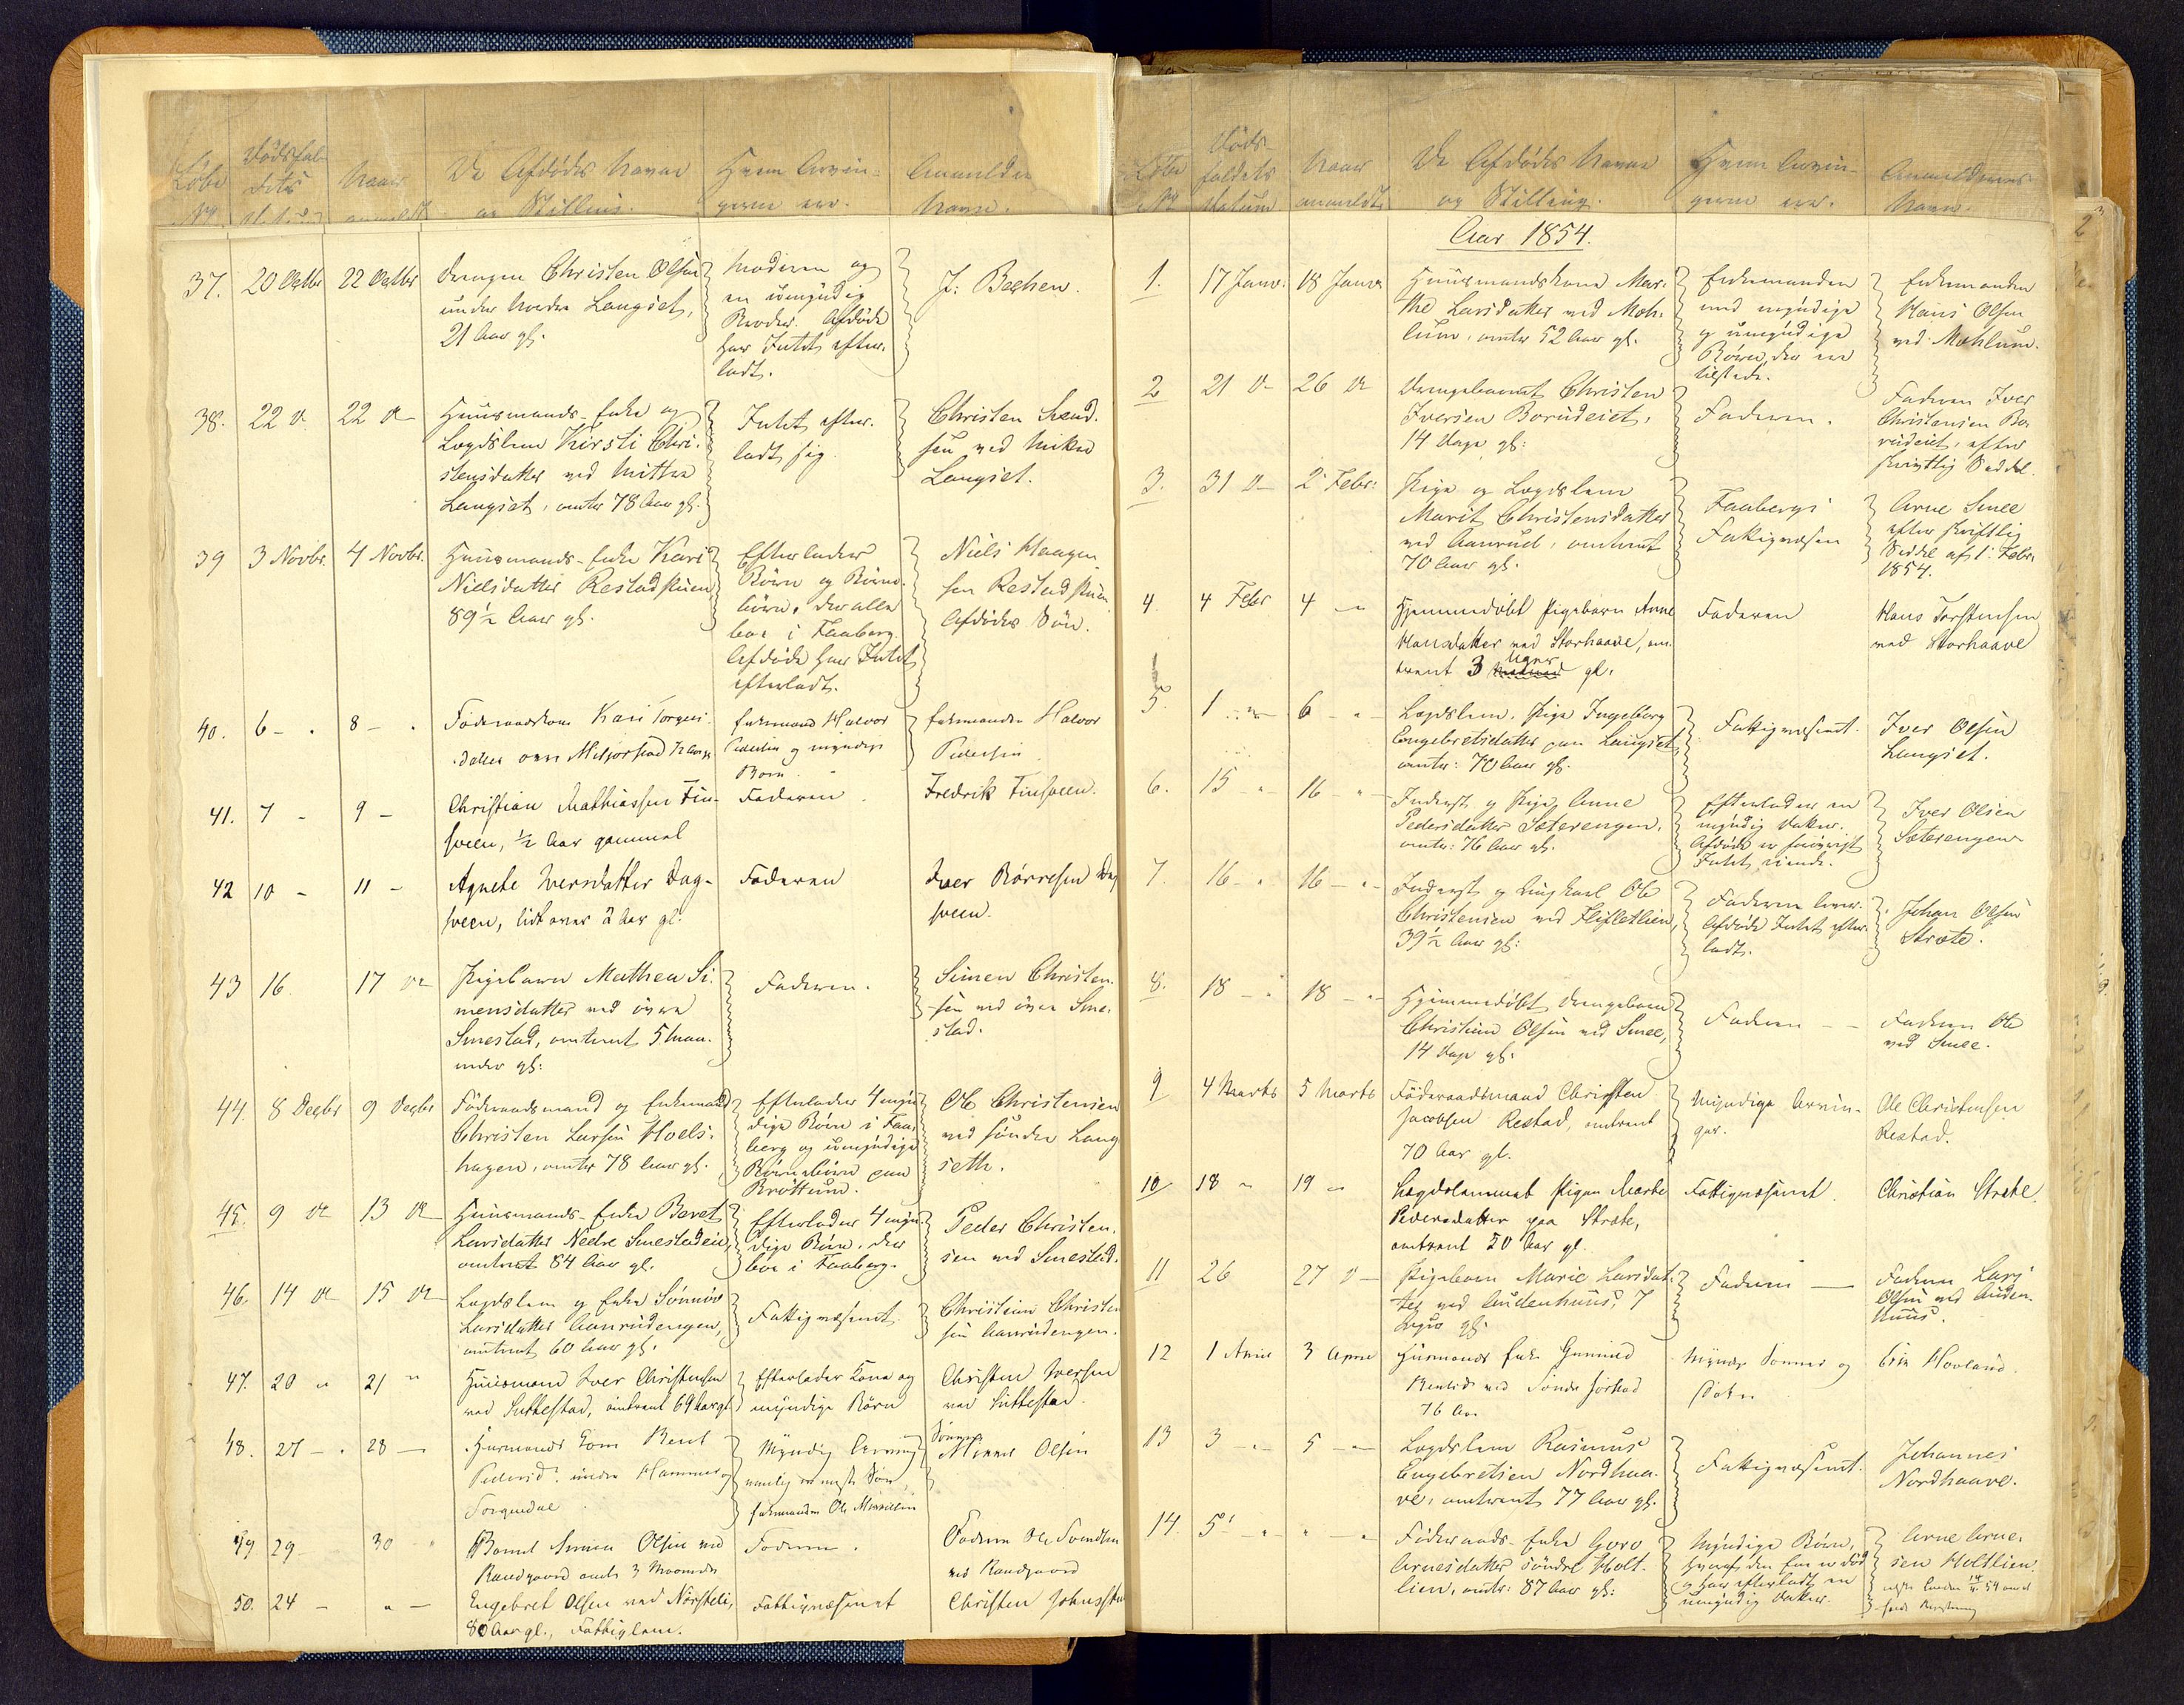 Löbe No
Dödsfaldets Datum
Naar anmeldt
De Afdödes Navne og Stilling.
Hvem Arvingerne ere.
Anmelderens Navn.
37.
20 Octbr
22 Octbr
Drengen Christen Olsen
under Nordre Langset,
21 Aar gl.
Moderen og
en umyndig
Broder. Afdöde
har Intet efter-
ladt.
J. Bechen.
38.
22 d
22 d
Huusmands-Enke og
Lægdslem Kirsti Chri-
stensdatter ved Mittre
Langset, omtr 78 Aar gl.
Intet efter-
ladt sig.
Christen Svend-
sen ved
Langset.
39
3 Novbr.
4 Novbr.
Huusmands-Enke Kari
Nielsdatter Restadstuen
89 1/2 Aar gl.
Efterlader
Börn og Börne-
börn, der alle
boe i Faaberg.
Afdöde har Intet
efterladt.
Niels Haagen-
sen Restadstuen
Afdödes Sön.
40.
6 -
8 -
Föderaadskone Kari Torgers-
datter
Enkemand Halvor
Pedersen og myndige
Börn.
Enkemanden Halvor
Pedersen
41.
7 -
9 -
Christian Mathiassen Fin-
sveen, 1/2 Aar gammel
Faderen
Fredrik Finsveen.
42
10 -
11 -
Agnethe Iversdatter Dag-
sveen, lidt over 2 Aar gl.
Faderen
Iver Börresen Dag
sveen.
43
16
17 d
Pigebarn Mathea Si-
mensdatter ved övre
Smestad, omtrent 5 Maa-
neder gl:
Faderen.
Simen Christen-
sen ved övre Sme-
stad.
44.
8 Decbr
9 Decbr
Föderaadsmand og Enkemand
Christen Larsen Hoels-
hagen, omtr 78 Aar gl.
Efterlader 4 myn
dige Börn i Faa-
berg og umyndige
Börnebörn paa
Bröttum.
Ole Christensen
ved söndre Lang
seth.
45.
9 d
13 d
Huusmands-Enke Beret
Larsdatter Nedre Smestadeie,
omtrent 84 Aar gl.
Efterlader 4 myn
dige Börn, der
boe i Faaberg.
Peder Christen-
sen ved Smestad.
46.
14 d
15 d
Lægdslem og Enke Sönnöv
Larsdatter Aanrudengen,
omtrent 60 Aar gl.
Fattigvæsenet
Christian Christen
sen Aanrudengen.
47.
20 "
21 "
Huusmand Iver Christensen
ved Suttestad, omtrent 69 Aar gl
Efterlader Kone og
myndige Börn
Christen Iversen
ved Suttestad.
48.
27 -
28 -
Husmands Kone Beret
Pedersd. under Hammer
Myndig Arving
nemlig en Sön,
Enkemanden Ole
Sönnen
Olsen
49
29
30
Barnet Simen Olsen ved
Randgaard omtr 3 Maaneder
Faderen.
Faderen Ole Svendsen
ved Randgaard
50.
24 -
" -
Engebret Olsen ved Nörsteli,
80 Aar gl., Fattiglem.
Fattigvæsenet
Christen Johnssen
Löbe No
Döds-
faldets
Datum
Naar
anmeldt
De Afdödes Navne
og Stilling.
Hvem Arvin-
gerne ere.
Anmelderens
Navn.
Aar 1854.
1.
17 Janr.
18 Janr
Huusmandskone Mar-
the Larsdatter ved Moh-
lum, omtr 52 Aar gl.
Enkemanden
med myndige
og umyndige
Börn, der ere
tilstede.
Enkemanden
Hans Olsen
ved Mohlum.
2
21 d
26 d
Drengebarnet Christen
Iversen Borudeiet,
14 Dage gl:
Faderen.
Faderen Iver
Christensen Bo-
rudeiet, efter
skriftlig Seddel.
3.
31 d
2 Febr:
Pige og Lægdslem
Marit Christensdatter
ved Aanrud, omtrent
70 Aar gl.
Faabergs
Fattigvæsen
Arne Smee
efter skriftlig
Seddel af 1. Febr.
1854.
4.
4 Febr
4 -
Hjemmedöbt Pigebarn Anne
Hansdatter ved Storhaave, om-
trent 3 Uger gl.
Faderen
Hans Torstensen
ved Storhaave
5.
1
6
Lægdslem, Pige Ingeborg
Engebretsdatter paa Langset
omtr: 70 Aar gl.
Fattigvæsenet.
Iver Olsen
Langset.
6.
15
16
Inderst og Pige Anne
Pedersdatter Sæterengen,
omtr: 76 Aar gl.
Efterlader en
myndig Datter.
Afdöde er forövrigt
Intet eiende.
Iver Olsen
Sæterengen
7.
16
16
Inderst og Ungkarl Ole
Christensen ved Flisletlien,
39 1/2 Aar gl:
Faderen Arver.
Afdöde Intet efter-
ladt.
Johan Olsen
Stræte.
8.
18
18
Hjemmedöbt Drengebarn
Christian Olsen ved Smee,
14 Dage gl.
Faderen
Faderen Ole
ved Smee.
9
4 Marts
5 Marts
Föderaadsmand Christen
Jacobsen Restad, omtrent
70 Aar gl.
Myndige Arvin-
ger.
Ole Christensen
Restad.
10
18 -
19 -
Lægdslemmet Pigen Marte
Pedersdatter paa Stræte,
omtrent 50 Aar gl.
Fattigvæsenet.
Christian Stræte
11
26
27 d
Pigebarn Marie Larsdat-
ter ved Audenhuus, 7
Uger gl.
Faderen
Faderen Lars
Olsen ved Auden-
huus.
12
1 April
3 April
Husmands Enke
ved Söndre Jörstad
76 Aar
Myndige Sönner og
Datter
Hovland
13
3
5
Lægdslem Rasmus
Engebretsen Nordhaa-
ve, omtrent 77 Aar gl.
Fattigvæsenet.
Johannes
Nordhaave.
14.
5
Föderaads-Enke Goro
Arnesdatter söndre Holt-
lien, omtr: 87 Aar gl:
Myndige Börn,
hvoraf den Ene er död
og har efterladt en
umyndig Datter.
Arne Arne-
sen Holtlien